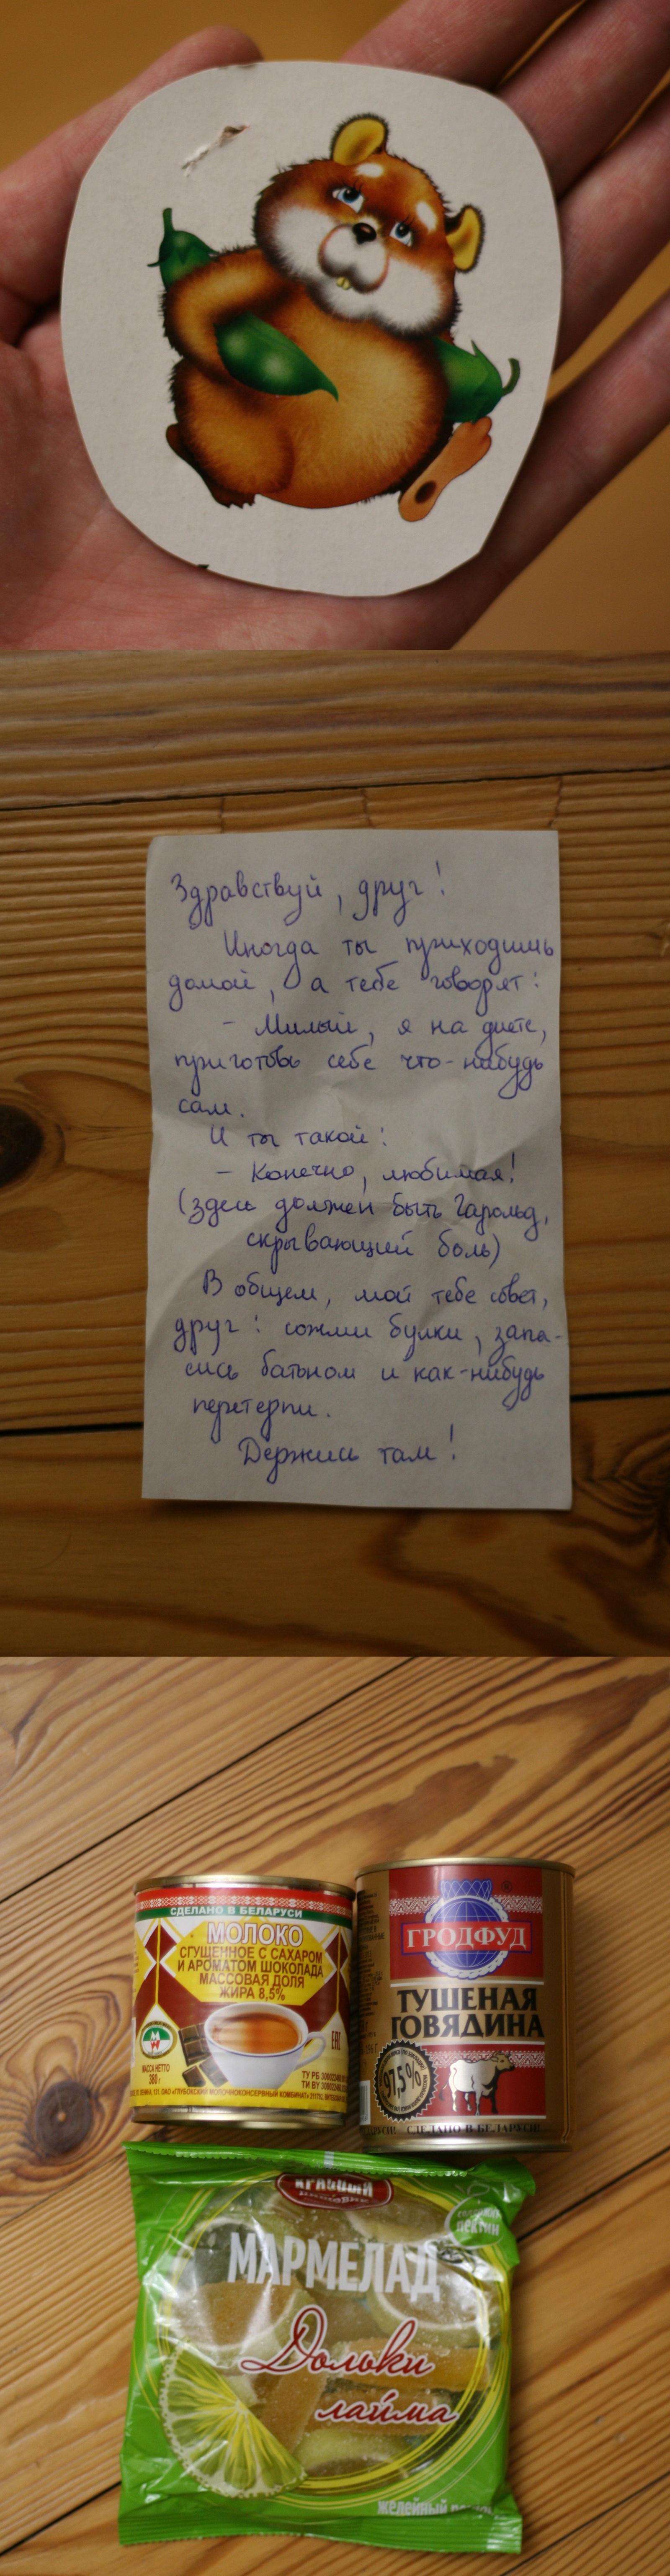 Здравствуй, друг!
Иногда ты приходишь
домой, а тебе говорят:
- Милый, я на диете,
приготовь себе что-нибудь
сам.
И ты такой:
- Конечно, любимая!
(здесь должен быть Гарольд,
скрывающий боль)
В общем, мой тебе совет,
друг: сожми булки, запа-
сись батоном и как-нибудь
перетерпи.
Держись там!
СДЕЛАНО В БЕЛАРУСИ
МОЛОКО
СГУЩЕННОЕ С САХАРОМ
И АРОМАТОМ ШОКОЛАДА
МАССОВАЯ ДОЛЯ
ЖИРА 8,5%
EAC
МАССА НЕТТО
380 г
ТУ РБ
ТИ BY
ОАО «ГЛУБОКСКИЙ МОЛОЧНОКОНСЕРВНЫЙ КОМБИНАТ»
®
ГРОДФУД
ТУШЕНАЯ
ГОВЯДИНА
97,5%
СДЕЛАНО В БЕЛАРУСИ
КРАСНЫЙ
ПИЩЕВИК
ПЕКТИН
МАРМЕЛАД
Дольки
лайма
желейный